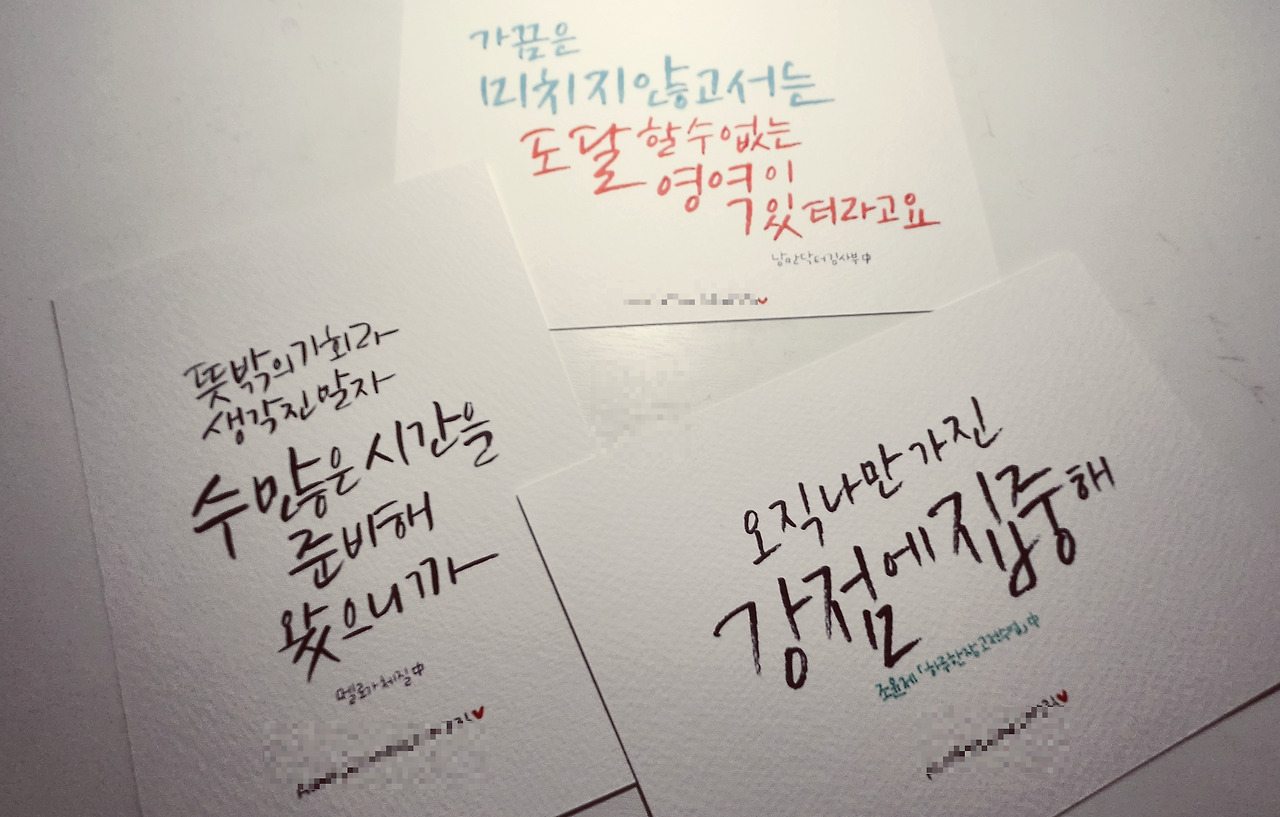 가끔은
미치지않고서는
도달할수없는
영역이
있더라고요
낭만닥터김사부中
뜻밖의기회라
생각진말자
수많은시간을
준비해
왔으니까
멜로가체질中
오직나만가진
강점에집중해
조윤제「하루한장고전수업」中